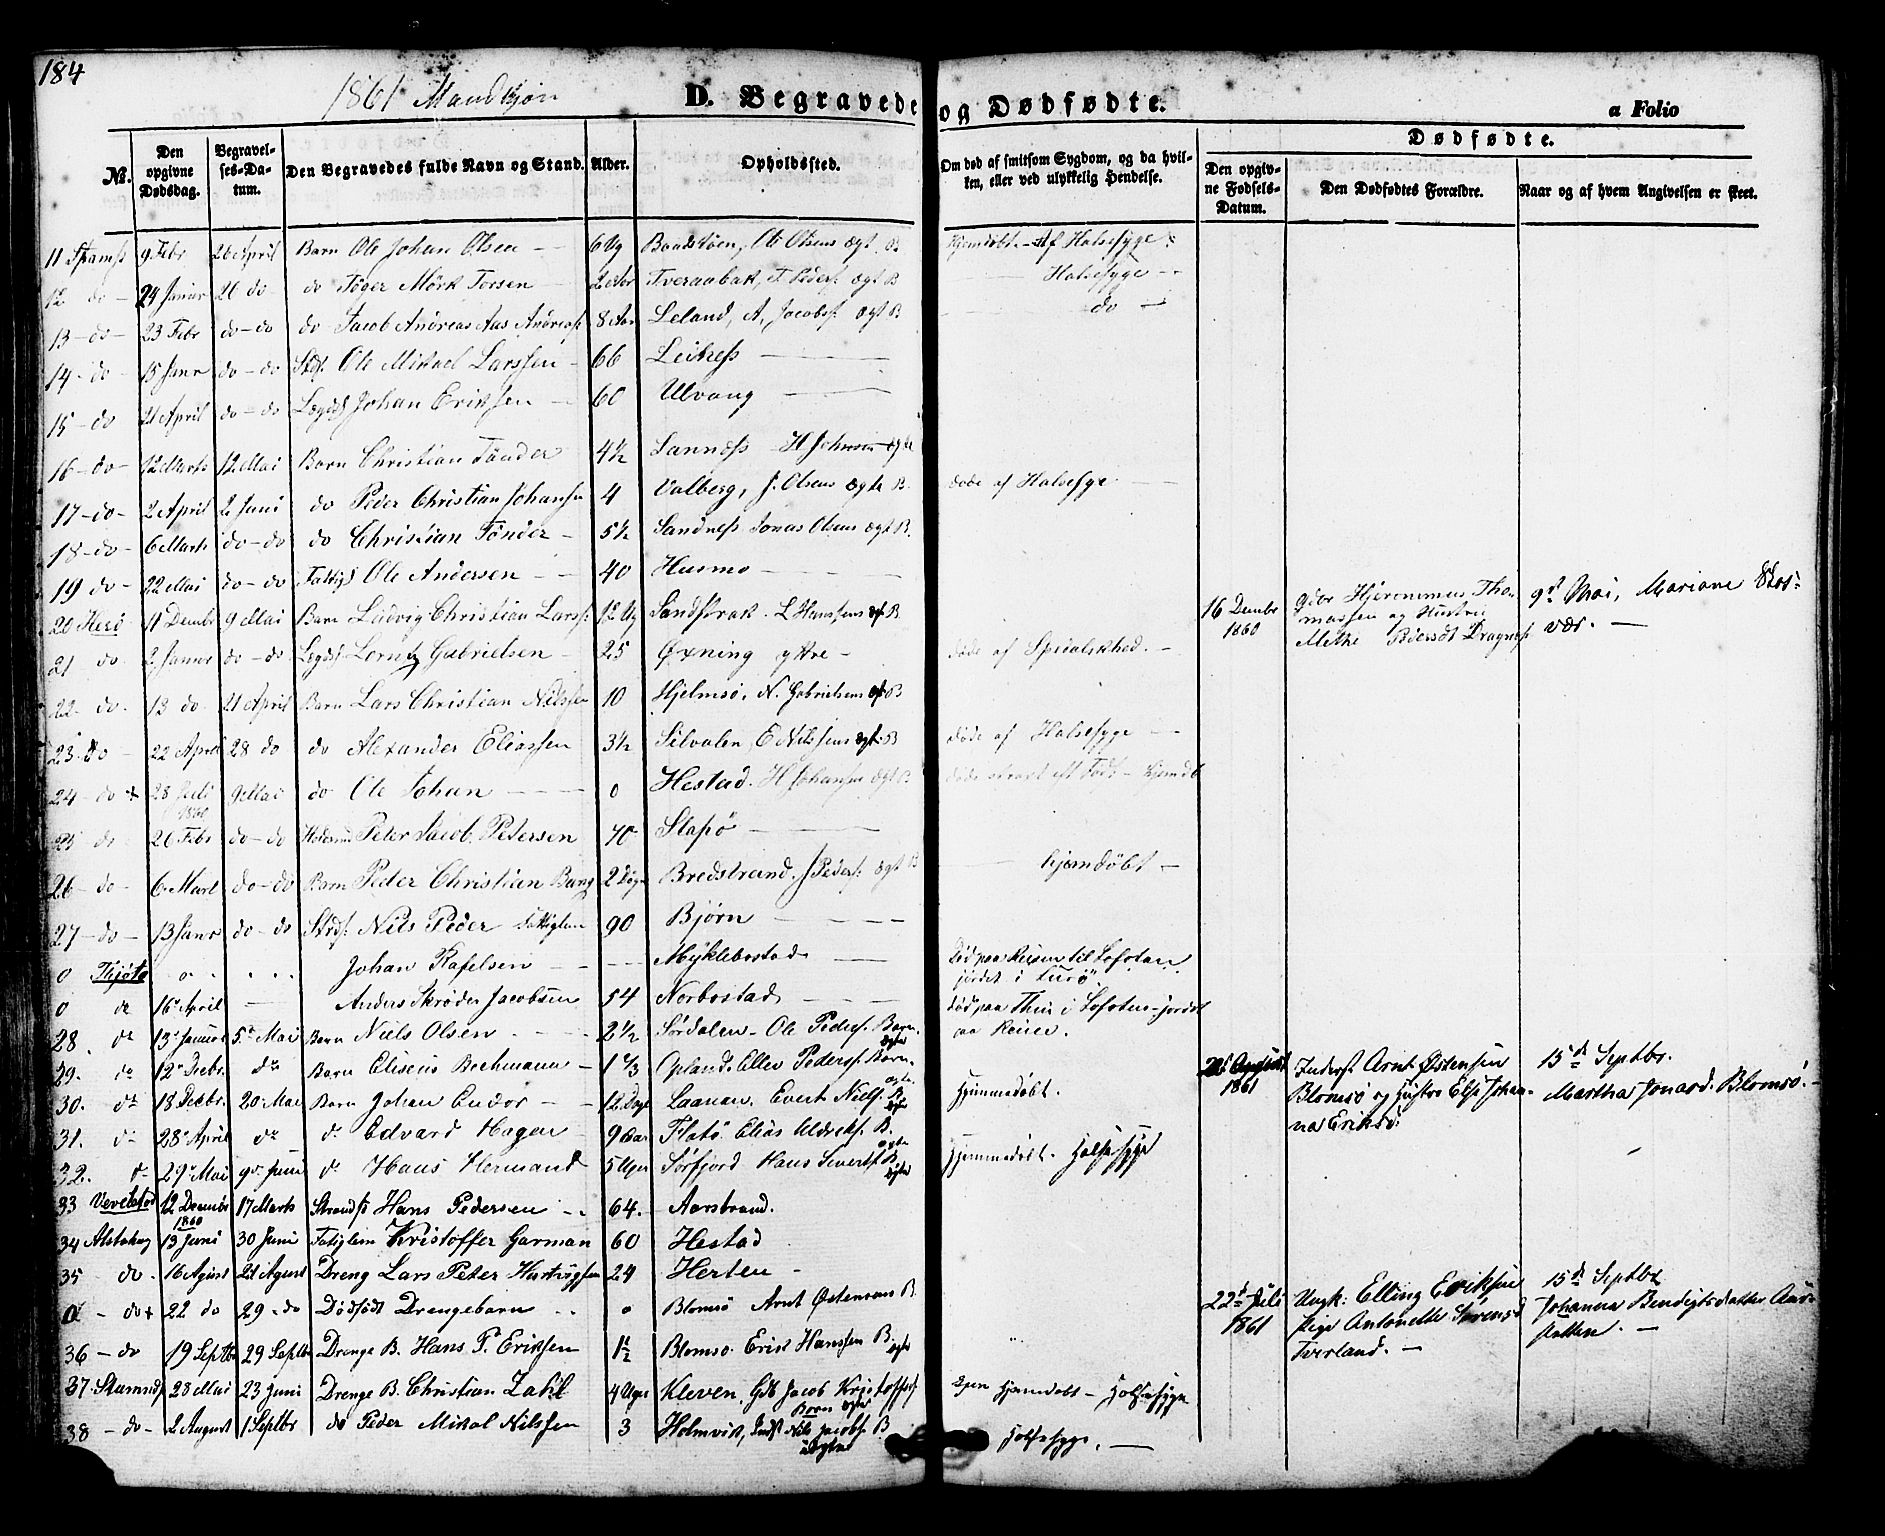 184
1861 Mandkjøn
D. Begravede og Dødfødte.
a Folio
Dødfødte.
No.
Den opgivne Dødsdag.
Begravelses-Datum.
Den Begravedes fulde Navn og Stand.
Alder.
Opholdssted.
Om død af smitsom Sygdom, og da hvilken, eller ved ulykkelig Hendelse.
Den opgivne Fødsels-Datum.
Den Dødfødtes Forældre.
Naar og af hvem Angivelsen er skeet.
11 9 Febr 26 April Barn Ole Johan Olsen 6 Ug Baadstøen, Ole Olsens ægt. B Hjemdøbt - Af Halsesyge
12 do 24 Januar 26 do do Tøger Mørk Torsen 2 Aar Tveraabak, T. Peders. ægt B Halsesyge
13 do 23 Febr do do do Jacob Andreas Aas Andreass. 8 Aar Leland, A. Jacobs. ægt B do
14 do 15 Janr do do Ole Mikael Larssen 66 Leirness
15 do 21 April do do Johan Eriksen 60 Ulvang
16 do 12 Marts 12 Mai Barn Christian Tønder 4½ Sanness H Johnsen ægte
17 do 2 April 2 Juni do Peder Christian Johansn 4 Valberg, J. Olsens ægte B. døde af Halsesyge
18 do 6 Marts do do do Christian Tønder 5½ Sandness Jonas Olsens ægt B.
19 do 22 Mai do do Fattigl Ole Andersen 40 Husmo
20 Herø 11 Dembr 9 Mai Barn Ludvig Christian Larss. 12 Ug Sandstrak. L Hanssens B
16 Dembr 1860 Hjeronimus Thomassen og Hustru Methe Pedersdt Dragnæs 9de Mai, Mariane Skosvær.
21 do 2 Januar do do Lægdsl Lorntz Gabrielsen 25 Øxning yttre døde af Spedalskhed.
22 do 13 do 21 April Barn Lars Christian Nilssen 10 Hjelmsø, N. Gabrielsens B
23 do 22 April 28 do do Alexander Eliassen 3½ Silvalen, E Nilssens ægt. B døde af Halsesyge
24 do + 28 Juli 1860 9 Mai do Ole Johan 0 Hestad. H Johansen ægt B døde strax eft Føds - hjemdt
25 do 26 Febr do do Peter Jacob Petersen 70 Slapø
26 do 6 Mart do do Barn Peder Christian Bang 2 Døgn Bredstrand. J Peders. ægt B hjemdøbt
27 do 13 Janr do do Nils Peder Fattiglem 90 Bjørn
0 Thjøtø Johan Rafelsen Myklebostad Død paa Reisen til Lofoten jordet i Lurø
0 do 16 April Anders Skrøder Jacobsen 54 Norbostad død paa i Lofoten jordet paa Reiser.
28 do 13 Januar 5te Mai Barn Niels Olsen 2½ Sørdalen Ole Peders. Barn ægte
29. do 12 Decbr. do Barn Eliseus Bechmann 1⅓ Opland. Ellev Peders. Barn ægte
2 August 1861 Inderst Arnt Østensen Blomsø og Hustro Else Johanna Eriksd. 15de Septbr. Martha Jonasd. Blomsø.
30. do 18 Decbr. 20 Mai Barn Johan Endor 12 Døgn Laanan. Evert Niels. B ægte Hjemmedøbt.
31. do 28 April do do Edvard Hagen 9 Aar Flatø. Elias Aldreks. B. ægte
32. do 29 Mai 9de Juni do Hans Hermand 5 Uger Sørfjord Hans Siverts. B. ægte Hjemmedøbt. Halsesyge
33 Vevelstad 12 Decmbr 1860 17 Marts Hans Pedersen 64. Aarsbrand.
34 Alstahoug 13 Juni 30 Juni Fatiglem Kristoffer Garman 60 Hestad
35 do 16 Agust 21 Agust Dreng Lars Peter Hartvigsen 24 Herten
0 do + 22 do 29 do Dødfødt Drengebarn 0 Blomsø Arnt Østensen B
22de Juli 1861 Ungk: Elling Eriksen Pige Antonette Sørensd Tverland. 15de Septbr Johanna Bendigtsdatter
36 do 19 Septbr 29 Septbr Drenge B. Hans P. Eriksen 1½ Blomsø. Erik Hanssen B. ægte
37 Stamnes 28 Mai 23 Juni Drenge B. Christian Zahl 4 Uger Kleven. Gdb Jacob Kristoffers Barn ægte Hjemdøbt - Halsesyge
38 do 2 August 1 Septbr do Peder Mikal Nilssen 3 Holmvik, Inds Nils Jacobs. B uægte Halsesyge.